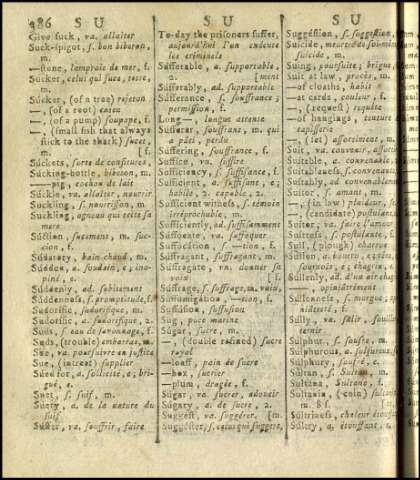 486 S U
S U
S U
Give suck, va. allaiter
Suck-spigot, s. bon biberon,
m.
—stone, lamproie de mer, f.
Sucker, celui qui suce, tette,
m.
Sucker, (of a tree) rejeton
—, (of a root)
—, (of a pump) soupape, f.
—, (small fish that always
stick to the shark) sucet,
m. [f.
Suckets, sorte de confitures,
Sucking-bottle, biberon, m.
—pig, cochon de lait
Suckle, va. allaiter, nourrir
Suckling, s. nourrisson, m.
Suckling, agneau qui tette sa
mere
Suction, sucement, m. suc-
cion, f.
Sudatory, bain chaud, m.
Sudden, a. soudain, e; ino-
piné, e.
Suddenly, ad. subitement
Suddenness, s. promptitude, f.
Sudorific, sudorifique, m.
Sudorific, a. sudorifique, 2.
Suds, s. eau de savonnage, f.
Suds, (trouble) embarras, m.
Sue, va. poursuivre en justice
Sue, (intreat) supplier
Sued for, a. sollicité, e; bri-
gué, e.
Suet, s. suif, m.
Suety, a. de la nature du
suif
Suffer, va. souffrir, faire
To-day the prisoners suffer,
aujourd'hui l'on exécute
les criminels
Sufferable, a. supportable,
2. [ment
Sufferably, ad. supportable
Sufferance, s. souffrance;
permission, f.
Long—, longue attente
Sufferer, souffrant, m. qui
a pâti, perdu
Suffering, souffrance, f.
Suffice, va. suffire
Sufficiency, s. suffisance, f.
Sufficient, a. suffisant, e;
habile, 2. capable, 2.
Sufficient witness, s. témoin
irréprochable, m.
Sufficiently, ad. suffisamment
Suffocate, va. suffoquer
Suffocation, s. —tion, f.
Suffragant, suffragant, m.
Suffragate, va. donner sa
voix [f.
Suffrage, s. suffrage, m. voix,
Suffumigation, —tion, f.
Suffusion, suffusion
Sug, puce marine
Sugar, sucre, m.
—, (double refined) sucre
royal
—loaf, pain de sucre
—box, sucrier
—plum, dragée, f.
Sugar, va. sucrer, adoucir
Sugary, a. de sucre, 2.
Suggest, va. suggérer, [m.
Suggester, s. celui qui suggere,
Suggestion, s. suggestion,
Suicide, meurtre de soi-même
suicide, m.
Suing, poursuite; brigue
Suit at law, procès, m.
—of cloaths, habit
—at cards, couleur, f.
—, (request) requête
—of hangings, tenture
tapisserie
—, (set) assortiment, m.
Suit, va. convenir, assortir
Suitable, a. convenable,
Suitableness, s. convenance
Suitably, ad. convenablement
Suitor, s. amant, m.
—, (in law) plaideur,
—, (candidate) postulant,
Suiter, va. faire l'amour
Suitress, s. postulante, f.
Sull, (plough) charrue,
Sullen, a. bourru,
sournois, e; chagrin, e.
Sullenly, ad. d'un air chagrin
—, opiniâtrément
Sullenness, s. morgue;
niâtreté, f.
Sully, va. salir, souiller
ternir
Sulphur, s. soufre, m.
Sulphurous, a. sulfureux,
Sulphury, soufré, e.
Sultan, s. Sultan, m.
Sultana, Sultane, f.
Sultana, (coin)
m. & f.
Sultriness, chaleur
Sultry, a. étouffant,